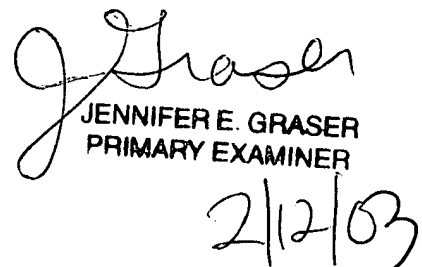 J Graser
JENNIFER E. GRASER
PRIMARY EXAMINER
2/12/03